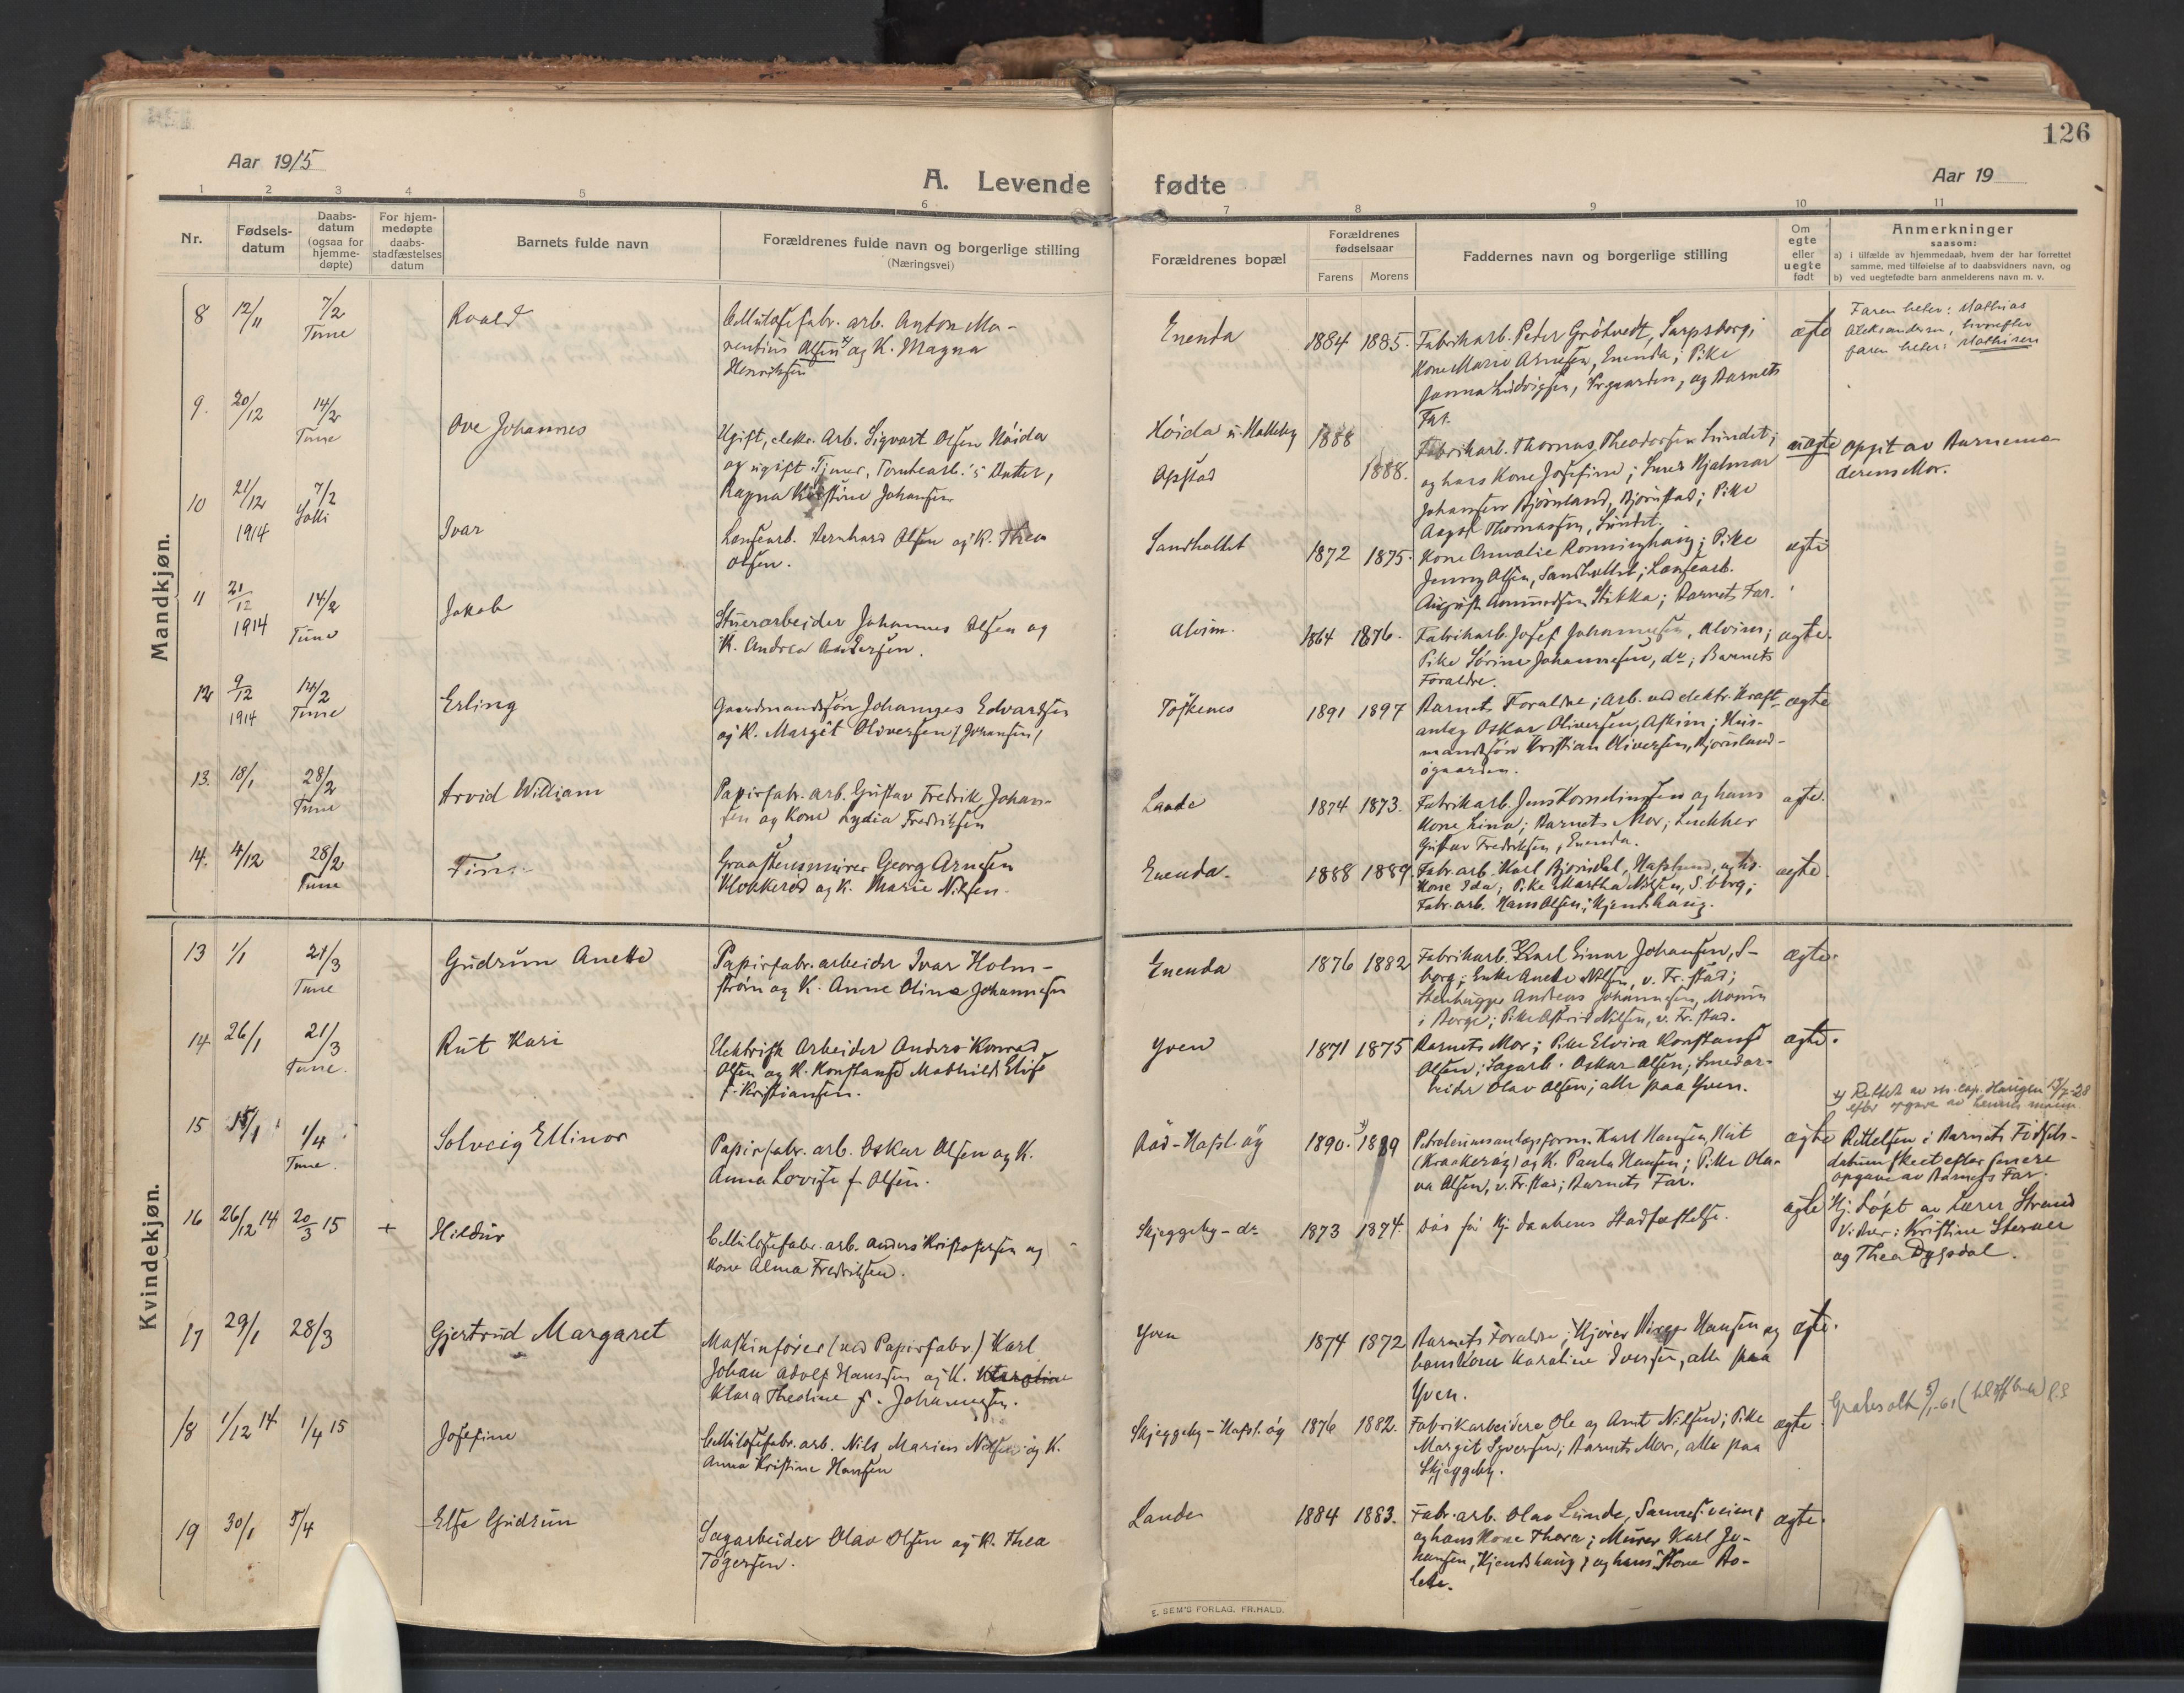 126
Aar 1915
A. Levende fødte
Aar 19
1 2 3 4 5 6 7 8 9 10 11
Nr.
Fødsels-
datum
Daabs-
datum
(ogsaa for
hjemme-
døpte)
For hjem-
medøpte
daabs-
stadfæstelses
datum
Barnets fulde navn
Forældrenes fulde navn og borgerlige stilling
(Næringsvei)
Forældrenes bopæl
Forældrenes
fødselsaar
Farens Morens
Faddernes navn og borgerlige stilling
Om
egte
eller
uegte
født
Anmerkninger
saasom:
a) i tilfælde av hjemmedaab, hvem der har forrettet
samme, med tilføielse af to daabsvidners navn, og
b) ved uegtefødte barn anmelderens navn m. v.
Mandkjøn.
8 12/11 7/2
Tune
Roald
Cellulosefabr. arb. Anton Ma-
rentius Olsen x) og K. Magna
Henriksen
Enenda
1884 1885.
Fabrikarb. Peder Grötvedt, Sarpsborg;
Kone Marie Arnesen, Enenda; Pike
Janna Ludvigsen, Prgaarden, og Barnets
Far.
ægte
Faren heter: Mathias
Aleksandersen, hvorefter
faren heter: Mathisen
9. 20/12 14/2
Tune
Ove Johannes
Ugift, elektr. Arb. Sigvart Olsen Höida
og ugift Tjener, Tomtearb.'s Datter,
Ragna Kristine Johansen
Höida u. Kalleby
Opstad
1888
1888.
Fabrikarb. Thomas Theodorsen Lundet;
og hans Kone Josefine; Smed Hjalmar
Johansen Björnland, Björnstad; Pike
Aagot Thomassen, Lundet.
uægte
Opgit av Barnemo-
derens Mor.
10 21/12
1914
7/2
Solli
Ivar
Lensearb. Bernhard Olsen og K. Thea
Olsen.
Sandhollet
1872 1875.
Kone Amalie Ronninghaug; Pike
Jenny Olsen, Sandhollet; Lensearb.
August Amundsen Stikka; Barnets Far.
ægte
11 21/12
1914
14/2
Tune
Jakob
Stuerarbeider Johannes Olsen og
K. Andrea Andersen.
Alvim.
1864 1876.
Fabrikarb. Josef Johannesen, Alvim;
Pike Sörine Johannesen, do; Barnets
Foraldre.
ægte.
12 9/12
1914
14/2
Tune
Erling
Gaardmandssön Johannes Edvardsen
og K. Margit Oliversen (Johansen)
Töskenes
1891 1897
Barnets Foraldre; Arb. ved elektr. Kraft-
anlæg Oskar Oliversen, Askim; Hus-
mandssön Kristian Oliversen, Björnland-
ögaarden.
ægte
13. 18/1 28/2
Tune
Arvid William
Papirfabr. arb. Gustav Fredrik Johan-
sen og Kone Lydia Fredriksen
Lande
1874 1873.
Fabrikarb. Jens Korneliussen og hans
Kone Lina; Barnets Mor; Snekker
Gustav Fredriksen, Enenda.
ægte.
14. 4/12 28/2
Tune
Finn
Graastensmurer Georg Arnesen
Klokkeröd og K. Marie Nilsen.
Enenda.
1888 1889
Fabr. arb. Karl Björndal, Hafslund, og hs.
Kone Ida; Pike Martha Nilsen, S.borg;
Fabr. arb. Hans Olsen, Hjendshaug.
ægte.
Kvindekjøn.
13 1/1 21/3
Tune
Gudrun Anette
Papirfabr. arbeider Ivar Holm-
ström og K. Anne Oline Johannesen
Enenda
1876 1882
Fabrikarb. Karl Einar Johansen, S-
borg; Enke Anette Nilsen, v. Fr.stad;
Stenhugger Andreas Johannesen, Moum
i Borge; Pike Astrid Nilsen, v. Fr.stad.
ægte.
14 26/1 21/3
Tune.
Rut Kari
Elektrisk Arbeider Anders Konrad
Olsen og K. Konstanse Mathilde Elise
f. Kristiansen.
Yven
1871 1875
Barnets Mor; Pike Elvira Konstanse
Olsen; Sagarb. Oskar Olsen; Smedar-
beider Olav Olsen; alle paa Yven.
ægte.
15 15/1 1/4
Tune.
Solveig Ellinor
Papirfabr. arb. Oskar Olsen og K.
Anna Lovise f. Olsen.
Röd-Hafsl.öy
1890. x) 1889
Petroleumsanlægsform. Karl Hansen, Kiit
(Kraakeröy) og K. Paula Hansen; Pike Ola-
va Olsen, v. Fr.stad; Barnets Far.
ægte
x) Rettet av res. cap. Haugen 19/7-28
efter opgave av hennes mann
Rettelsen i Barnets Födsels-
datum skeet efter senere
opgave av Barnets Far.
16 26/12 14 20/3 15 +
Hildur
Cellulosefabr. arb. Anders Kristofersen og
Kone Alma Fredriksen.
Skjeggeby - do
1873 1874.
Död för Hj. daabens Stadfæstelse.
ægte
Hj. döpt av Lærer Strand
Vidner: Kristine Sterner
og Thea Dypdal.
17 29/1 28/3
Gjertrud Margaret
Maskinförer (ved Papirfabr.) Karl
Johan Adolf Hanssen og K. Karoline
Klara Thedine f. Johannesen.
Yven
1874 1872
Barnets Foraldre; Kjörer Birger Hansen og
hans Kone Karoline Iversen, alle paa
Yven.
ægte.
18 1/12 14 1/4 15
Josefine
Cellulosefabr. arb. Nils Marius Nilsen og K.
Anna Kristine Hansen
Skjeggeby - Hafsl.öy
1876 1882.
Fabrikarbeidere Ole og Arnt Nilsen; Pike
Margit Syversen; Barnets Mor, alle paa
Skjeggeby.
ægte.
19 30/1 5/4
Else Gudrun
Sagarbeider Olav Olsen og K. Thea
Tögersen.
Lande
1884 1883.
Fabr. arb. Olav Lunde, Sannes.veien;
og hans Kone Thora; Murer Karl Jo-
hansen, Hjendshaug; og hans Kone Bo-
lette.
ægte.
E. SEM'S FORLAG. FR.HALD.